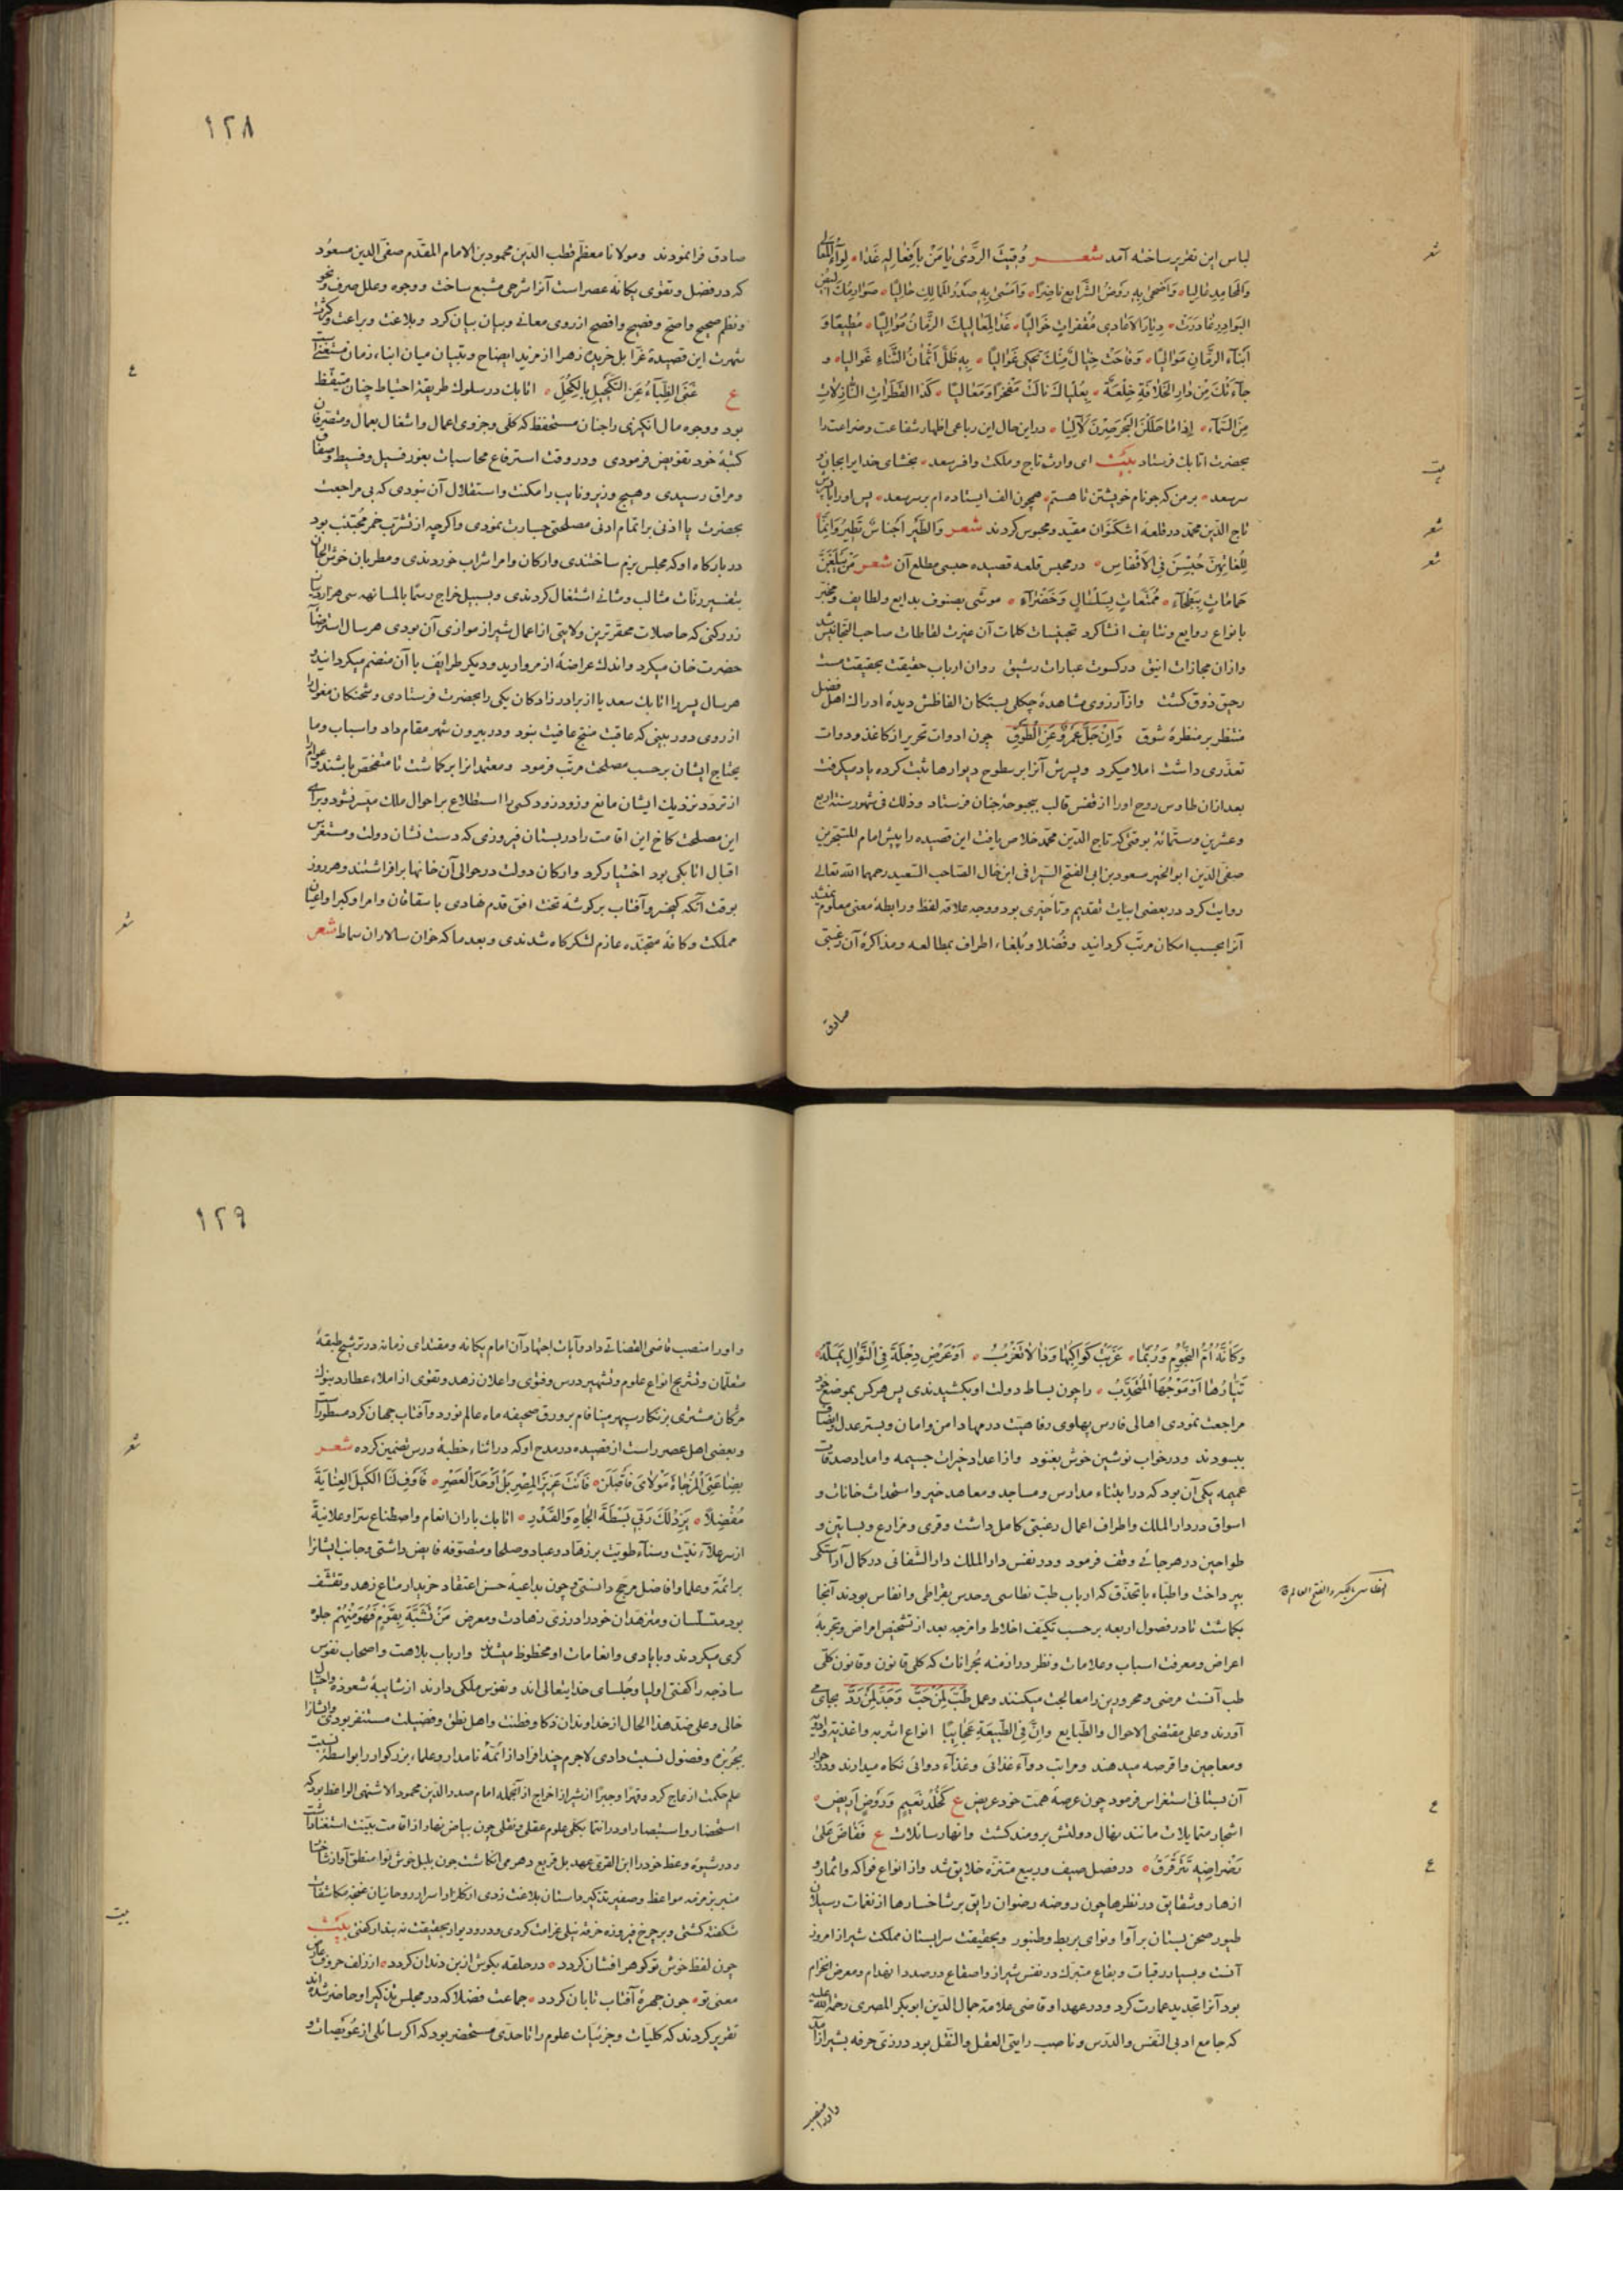 لباس این تقریر ساخته آمد شعر وُقیتَ الرَّدیٰ یا مَنْ بِاَفعالِهِ غَدا لِواءُ المَعالی
وَالمحامِدِ عالیا وَاَضحیٰ بِهِ رَوضُ الشَّرایعِ ناضِرًا وَاَمسیٰ بِهِ صَدرُ المَمالِكِ حالِیًا صَوارِمُكَ البیض
البَوادِر غادَرَتْ دِیارَ الاَعادی مُقْفِراتٍ خَوالِیًا غَدا لِمَعالیكَ الزَّمانُ مُوالِیًا مُطیعًا وَ
اَبناء الزَّمانِ مَوالِیًا وَ خِبالٌ مِنْكَ یَحكی غَوالِیًا بِهِ ظَلَّ اَثمانُ الثَّناءِ غَوالِیا و
جاءَتْكَ مِن دارِ الخَلافَةِ خِلعَةٌ بِعُلیاكَ نالَتْ مَفْخَرًا وَمَعالِیًا كَذا القَطَراتُ النّازِلاتِ
مِنَ السَّماء اِذا ما حَلَلْنَ البَحرَ صِرْنَ لَآلِیًا و در این حال این رباعی اظهار شفاعت و ضراعت را
بحضرت اتابك فرستاد بیت ای وارث تاج و ملكت وافسر سعد بخشای خدایرا بجان و
سر سعد بر من كه جو نام خویشتن تا هستم همچون الف ایستاده ام بر سر سعد پس او را با پسر
تاج الدین محمد در قلعه اشكنوان مقید و محبوس كردند شعر وَالطَّیْرُ اَجْناسٌ تَطیرُ وَاِنَّما
لِلُغاتِهِنَّ حُبِسْنَ فِی الاَقْفاسِ در محبس قلعه قصیده حبسی مطلع آن شعر مَنْ یُبَلِّغَنْ
حَماماتٍ بِبَطْحاء مُمَتَّعاتٍ بِسَلْسالٍ وَخَضْراء موشی بصنوف بدایع و لطایف و مخبر
بانواع روایع و نتایف انشا كرد تجنیسات كلمات آن عبرت لقاطات صاحب التجانیس شد
و ازان مجازات انیق در كسوت عبارات رشیق روان ارباب حقیقت بحقیقت مست
رحیق ذوق گشت و از آرزوی مشاهدهٔ چگلی بستكان الفاظش دیدهٔ ادراك اهل فضل
منتظر بر منظرهٔ شوق وَاِنْ جَلَّ عَمْرٌو عَنِ الطَّوْقِ چون ادوات تحریر از كاغذ و دوات
تعذری داشت املا میكرد و پسرش آنرا بر سطوح دیوارها ثبت كرده یاد میگرفت
بعد ازان طاوس روح او را از قفس قالب ببحبوحهٔ جنان فرستاد وذلك فی شهور سنة اربع
وعشرین وستمائة بوقتی كه تاج الدین محمد خلاص یافت این قصیده را پیش امام المتبحرین
صفی الدین ابوالخیر مسعود بن ابی الفتح السیرافی ابن خال الصاحب السعید رحمهما الله تعالی
روایت كرد در بعضی ابیات تقدیم و تأخیری بود و وجه علاقه لفظ و رابطهٔ معنی معلوم نمیشد
آنرا بحسب امكان مرتب گردانید و فُضلا و بُلغاء اطراف بمطالعه و مذاكرهٔ آن رغبتی
صادق
شعر
بیت
شعر
شعر
۱۲۸
صادق فرا نمودند و مولانا معظم قطب الدین محمود بن الامام المقدم صفی الدین مسعود
كه در فضل و تقوی یگانهٔ عصر است آنرا شرحی مشبع ساخت و وجوه و علل صرف و نحو
و نظم صحیح واضح و فصیح و افصح از روی معانی و بیان بیان كرد و بلاغت و براعت و كثرت
شهرت این قصیدهٔ غرا بل خریدهٔ زهرا از مزید ایضاح و تبیان میان ابناء زمان مستغنی است
ع غَنَی الظِّباءُ عَنِ التَّكَحُّلِ بِالكُحُلِ اتابك در سلوك طریقهٔ احتیاط چنان متیقظ
بود و وجوه مال انگیزی را چنان مستحفظ كه كلی و جزوی اعمال و اشغال بعمال و متصرفان
كتبهٔ خود تفویض فرمودی و در وقت استرفاع محاسبات بغور فسیل و فسیط و صفاق
و مراق رسیدی و هیچ وزیر و نایب را مكنت و استقلال آن نبودی كه بی مراجعت
بحضرت یا اذنی بر اتمام ادنی مصلحتی جسارت نمودی و اگرچه از تشرب خمر مجتنب بود
در بارگاه او كه مجلس بزم ساختندی و اركان و امرا شراب خوردندی و مطربان خوش الحان
بتفسیر رنّات مثالث و مثانی اشتغال كردندی و بسبیل خراج رسمًا بالمسانهه سی هزار دینار
زر ركنی كه حاصلات محقرترین ولایتی از اعمال شیراز موازی آن بودی هر سال استرضاءً
حضرت خان میكرد و اندك عراضهٔ از مروارید و دیگر طرایف با آن منضم میگردانید و
هر سال پسر را اتابك سعد یا از برادر زادگان یكی را بحضرت فرستادی و شحنگان مغول را
از روی دوربینی كه عاقبت منتج عافیت بود و در بیرون شهر مقام داد و اسباب و ما
یحتاج ایشان بر حسب مصلحت مرتب فرمود و معتمد انرا برگماشت تا متفحص باشند و عوام را
از تردد نزدیك ایشان مانع و زود زود كسی را استطلاع بر احوال ملك میسر نشود و برای
این مصلحت كاخ این اقامت را در بستان فیروزی كه دست نشان دولت و مستغرس
اقبال اتابكی بود اختیار كرد و اركان دولت در حوالی آن خانها برافراشتند و هر روز
بوقت آنكه كیخسرو آفتاب بر گوشهٔ تخت افق قدم نهادی با سقاقان و امرا و كبرا و اعیان
مملكت و كافهٔ متجنده عازم لشكرگاه شدندی و بعد ما كه خوان سالاران سماط شعر
ع
شعر
وَكَأَنَّهُ اُمُّ النُّجُومِ وَرُبَّما عَزَبَتْ كَواكِبُها وَذا لا تَعْزُبُ اَوْ عَرْضِ دِجْلَةَ فِی النَّوالِ یَمُدُّهُ
تَیّارُها اَوْ مَوْجُهَا المُتَحَدِّبُ را چون بساط دولت او بكشیدندی پس هر كس بموضع خود
مراجعت نمودی اهالی فارس پهلوی رفاهیت در مهاد امن و امان و بستر عدل و انصاف
بیسودند و در خواب نوشین خوش بغنود و از اعداد خیرات جسیمه و امداد صدقات
عمیمه یكی آن بود كه در ابتناء مدارس و مساجد و معاهد خیر و استحداث خانات و
اسواق در دار الملك و اطراف اعمال رغبتی كامل داشت و قری و مزارع و بساتین و
طواحین در هر جائی وقف فرمود و در نفس دار الملك دار الشفائی در كمال آراستگی
بپرداخت و اطبّاء با تحذّق كه ارباب طبّ نطاسی و حدس بقراطی و انفاس بودند آنجا
بگماشت تا در فصول اربعه بر حسب تكیف اخلاط و امزجه بعد از تشخیص امراض و تجربهٔ
اعراض و معرفت اسباب و علامات و نظر در ازمنه بُحرانات كه كلی قانون و قانون كلی
طب آنست مرضی و محرورین را معالجت میكنند و عمل طَبَّ لِمَنْ حَبَّ وَجَدَّ لِمَنْ وَدَّ بجای می
آورند و علی مقتضی الاحوال و الطبایع وَاِنَّ فِی الطَّبیعَةِ عَجائِبًا انواع اشربه و اغذیه و ادویه
و معاجین و اقرصه میدهند و مراتب دواء غذائی و غذاء دوائی نگاه میدارند و در جوار
آن بستانی استغراس فرمود چون عرصهٔ همت خود عریض ع كَخُلْدِ نَعیمٍ وَرَوْضٍ اَریضٍ
اشجار متمایلات مانند نهال دولتش برومند گشت و انهار سائلات ع فَفاضَ عَلیٰ
رَضْراضِهِ تَتَرَقْرَقُ در فصل صیف و ربیع متنزّه خلایق شد و از انواع فواكه و اثمار و
ازهار و شقایق در نظرها چون روضه رضوان رایق بر شاخسارها از نغمات رسیلان
طیور صحن بستان بر آوا و نوای بربط و طنبور و بحقیقت سرابستان مملكت شیراز امروز
آنست و بسیار رقبات و بقاع متبرك در نفس شیراز و اصقاع در صدد انهدام و معرض انخرام
بود آنرا تجدید عمارت كرد و در عهد او قاضی علامه جمال الدین ابوبكر المصری رحمة الله علیه
كه جامع ادبی النفس والدرس و ناصب رایتی العقل والنقل بود در زی حرفه بشیراز آمد
و او را منصب
ع
ع
۱۲۹
و او را منصب قاضی القضاتی داد و آیات اجتهاد آن امام یگانه و مقتدای زمانه در ترشیح طبقهٔ
متعلّمان و تشریح انواع علوم و تشهیر درس و فتوی و اعلان زهد و تقوی از املاء عطارد بنوك
مژگان مشتری بزنگار سپهر مینا فام بر ورق صحیفه ماه عالم نورد و آفتاب جهان گرد مسطور است
و بعضی اهل عصر راست از قصیده در مدح او كه در اثناء خطبهٔ درس تضمین كرده شعر
بِضاعَتِیَ المُزْجاةُ مَوْلایَ فَاقْبَلَنْ فَاَنْتَ عَزیزُ المِصْرِ بَلْ اَوْحَدُ العَصْرِ فَاَوْفِ لَنَا الكَیْلَ العِنایَةَ
مُفْضِلًا یَزِدْ لَكَ رَبّی بَسْطَةَ الجاهِ وَالقَدْرِ اتابك باران انعام و اصطناع سرًّا و علانیةً
از سر علاء نیّت و سناء طویت بر زهاد و عباد و صلحا و متصوفه فایض داشتی و جانب ایشان را
بر ائمّه و علما و افاضل مرجح دانستی و چون بداعیهٔ حسن اعتقاد خریدار متاع زهد و تقشف
بود متسلّسان و متزهدان خود را در زی زهادت و معرض مَنْ تَشَبَّهَ بِقَوْمٍ فَهُوَ مِنْهُمْ جلوه
گری میكردند و بایادی و انعامات او محظوظ میشدند و ارباب بلاهت و اصحاب نفوس
ساذجه را گفتی اولیا و جُلسای خدایتعالی اند و نفوس ملكی دارند از شایبهٔ شعوذه و احتیال
خالی و علی ضدّ هذا الحال از خداوندان ذكا و فطنت و اهل نطق و فضیلت مستنفر بودی و ایشانرا
بجُربزه و فضول نسبت دادی لاجرم چند افراد از ائمّهٔ نامدار و علماء بزرگوار را بواسطهٔ نسبت
علم حكمت ازعاج كرد و قهرًا و جبرًا از شیراز اخراج از آنجمله امام صدر الدین محمود الاشنهی الواعظ بود كه
استحضار و استبصار او در انتما بكلی علوم عقلی و نقلی چون بیاض نهار از اقامت بیّنت استغنا داشت
و در شیوهٔ وعظ خود را ابن القریّ عهد بل قریع دهر می انگاشت چون بلبل خوش نوا منطق آوا ز شاخسار
منبر بزمزمه مواعظ و صفیر تذكیر داستان بلاغت زدی از گلزار اسرار روحانیان غنچهٔ مكاشفات
شگفته گشتی و بر چرخ فیروزه خرقه نیلی غرامت كردی و در و دیوار بحقیقت نه پندار گفتی بیت
چون لفظ خوش تو گوهر افشان گردد در حلقه بگوش ازین دندان گردد از زلف حروف عكس
معنی تو چون چهرهٔ آفتاب تابان گردد جماعت فضلا كه در مجلس تذكیر او حاضر شده اند
تقریر كردند كه كلیّات و جزئیات علوم را تا حدی مستحضر بود كه اگر سائلی از عویصات و
شعر
بیت